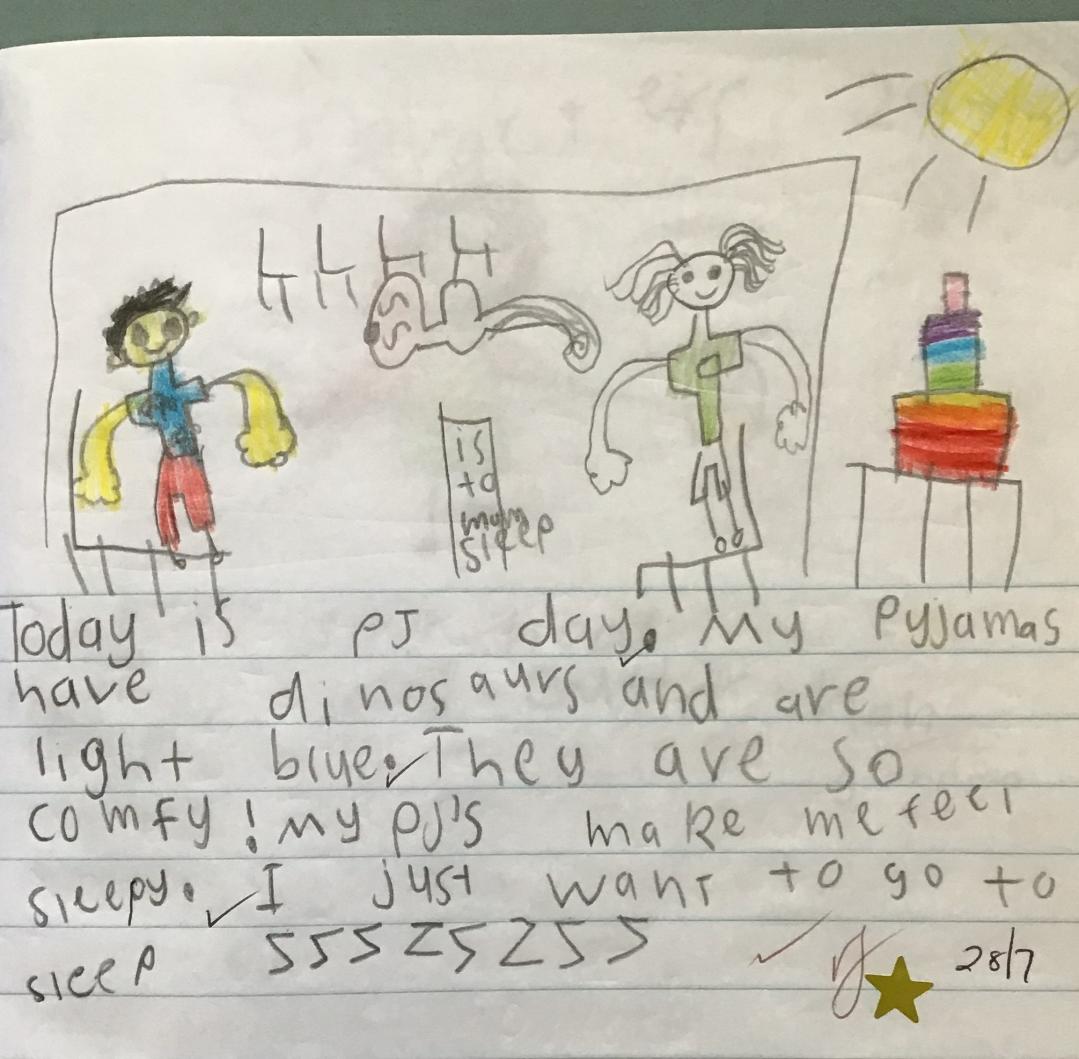 is
to
many
sleep
Today is PJ day. My Pyjamas
have dinosaurs and are
light blue. They are so
comfy! My PJ's make me feel
sleepy. I just want to go to
sleep SSSZSZSS
28/7